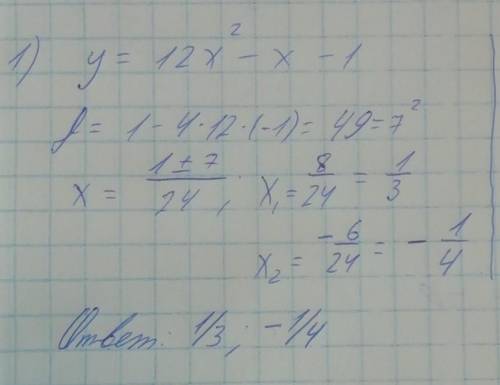 1) y = 12x² - x - 1
D = 1 - 4·12·(-1) = 49 = 7²
x = (1 ± 7)/24; x₁ = 8/24 = 1/3
x₂ = -6/24 = -1/4
Ответ: 1/3; -1/4